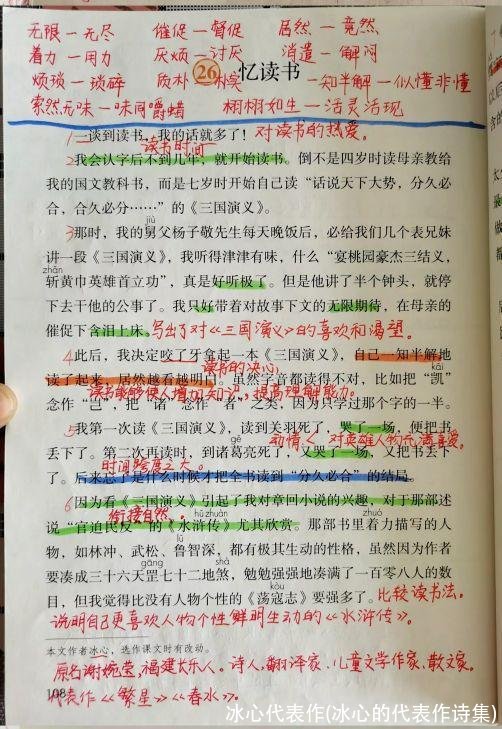 无限—无尽 催促—督促 居然—竟然
着力—用力 厌烦—讨厌 消遣—解闷
烦琐—琐碎 质朴—朴实 一知半解—似懂非懂
索然无味—味同嚼蜡 栩栩如生—活灵活现
26 忆读书
1一谈到读书，我的话就多了！对读书的热爱。
读书时间
2我会认字后不到几年，就开始读书。倒不是四岁时读母亲教给
我的国文教科书，而是七岁时开始自己读“话说天下大势，分久必
合，合久必分……”的《三国演义》。
jiù
3那时，我的舅父杨子敬先生每天晚饭后，必给我们几个表兄妹
讲一段《三国演义》，我听得津津有味，什么“宴桃园豪杰三结义，
zhǎn
斩黄巾英雄首立功”，真是好听极了。但是他讲了半个钟头，就停
下去干他的公事了。我只好带着对故事下文的无限期待，在母亲的
催促下含泪上床。写出了对《三国演义》的喜欢和渴望。
4此后，我决定咬了牙拿起一本《三国演义》，自己一知半解地
读书的决心
读了起来，居然越看越明白。虽然字音都读得不对，比如把“凯”
kǎi
读书能够使人增加知识，提高理解能力。
念作“岂”，把“诸”念作“者”之类，因为只学过那个字的一半。
5我第一次读《三国演义》，读到关羽死了，哭了一场，便把书
动情
对英雄人物充满喜爱。
gě
丢下了。第二次再读时，到诸葛亮死了，又哭了一场，又把书丢下
时间跨度之大。
了。后来忘了是什么时候才把全书读到“分久必合”的结局。
6因为看《三国演义》引起了我对章回小说的兴趣，对于那部述
衔接自然。
hǔzhuàn
zhuó
说“官迫民反”的《水浒传》尤其欣赏。那部书里着力描写的人
lǔ
物，如林冲、武松、鲁智深，都有极其生动的性格，虽然因为作者
gāng shà
要凑成三十六天罡七十二地煞，勉勉强强地凑满了一百零八人的数
kòu
目，但我觉得比没有人物个性的《荡寇志》要强多了。比较读书法。
说明自己更喜欢人物个性鲜明生动的《水浒传》。
本文作者冰心，选作课文时有改动。
原名谢婉莹，福建长乐人。诗人，翻译家、儿童文学作家、散文家。
108
代表作《繁星》《春水》。
冰心代表作(冰心的代表作诗集)